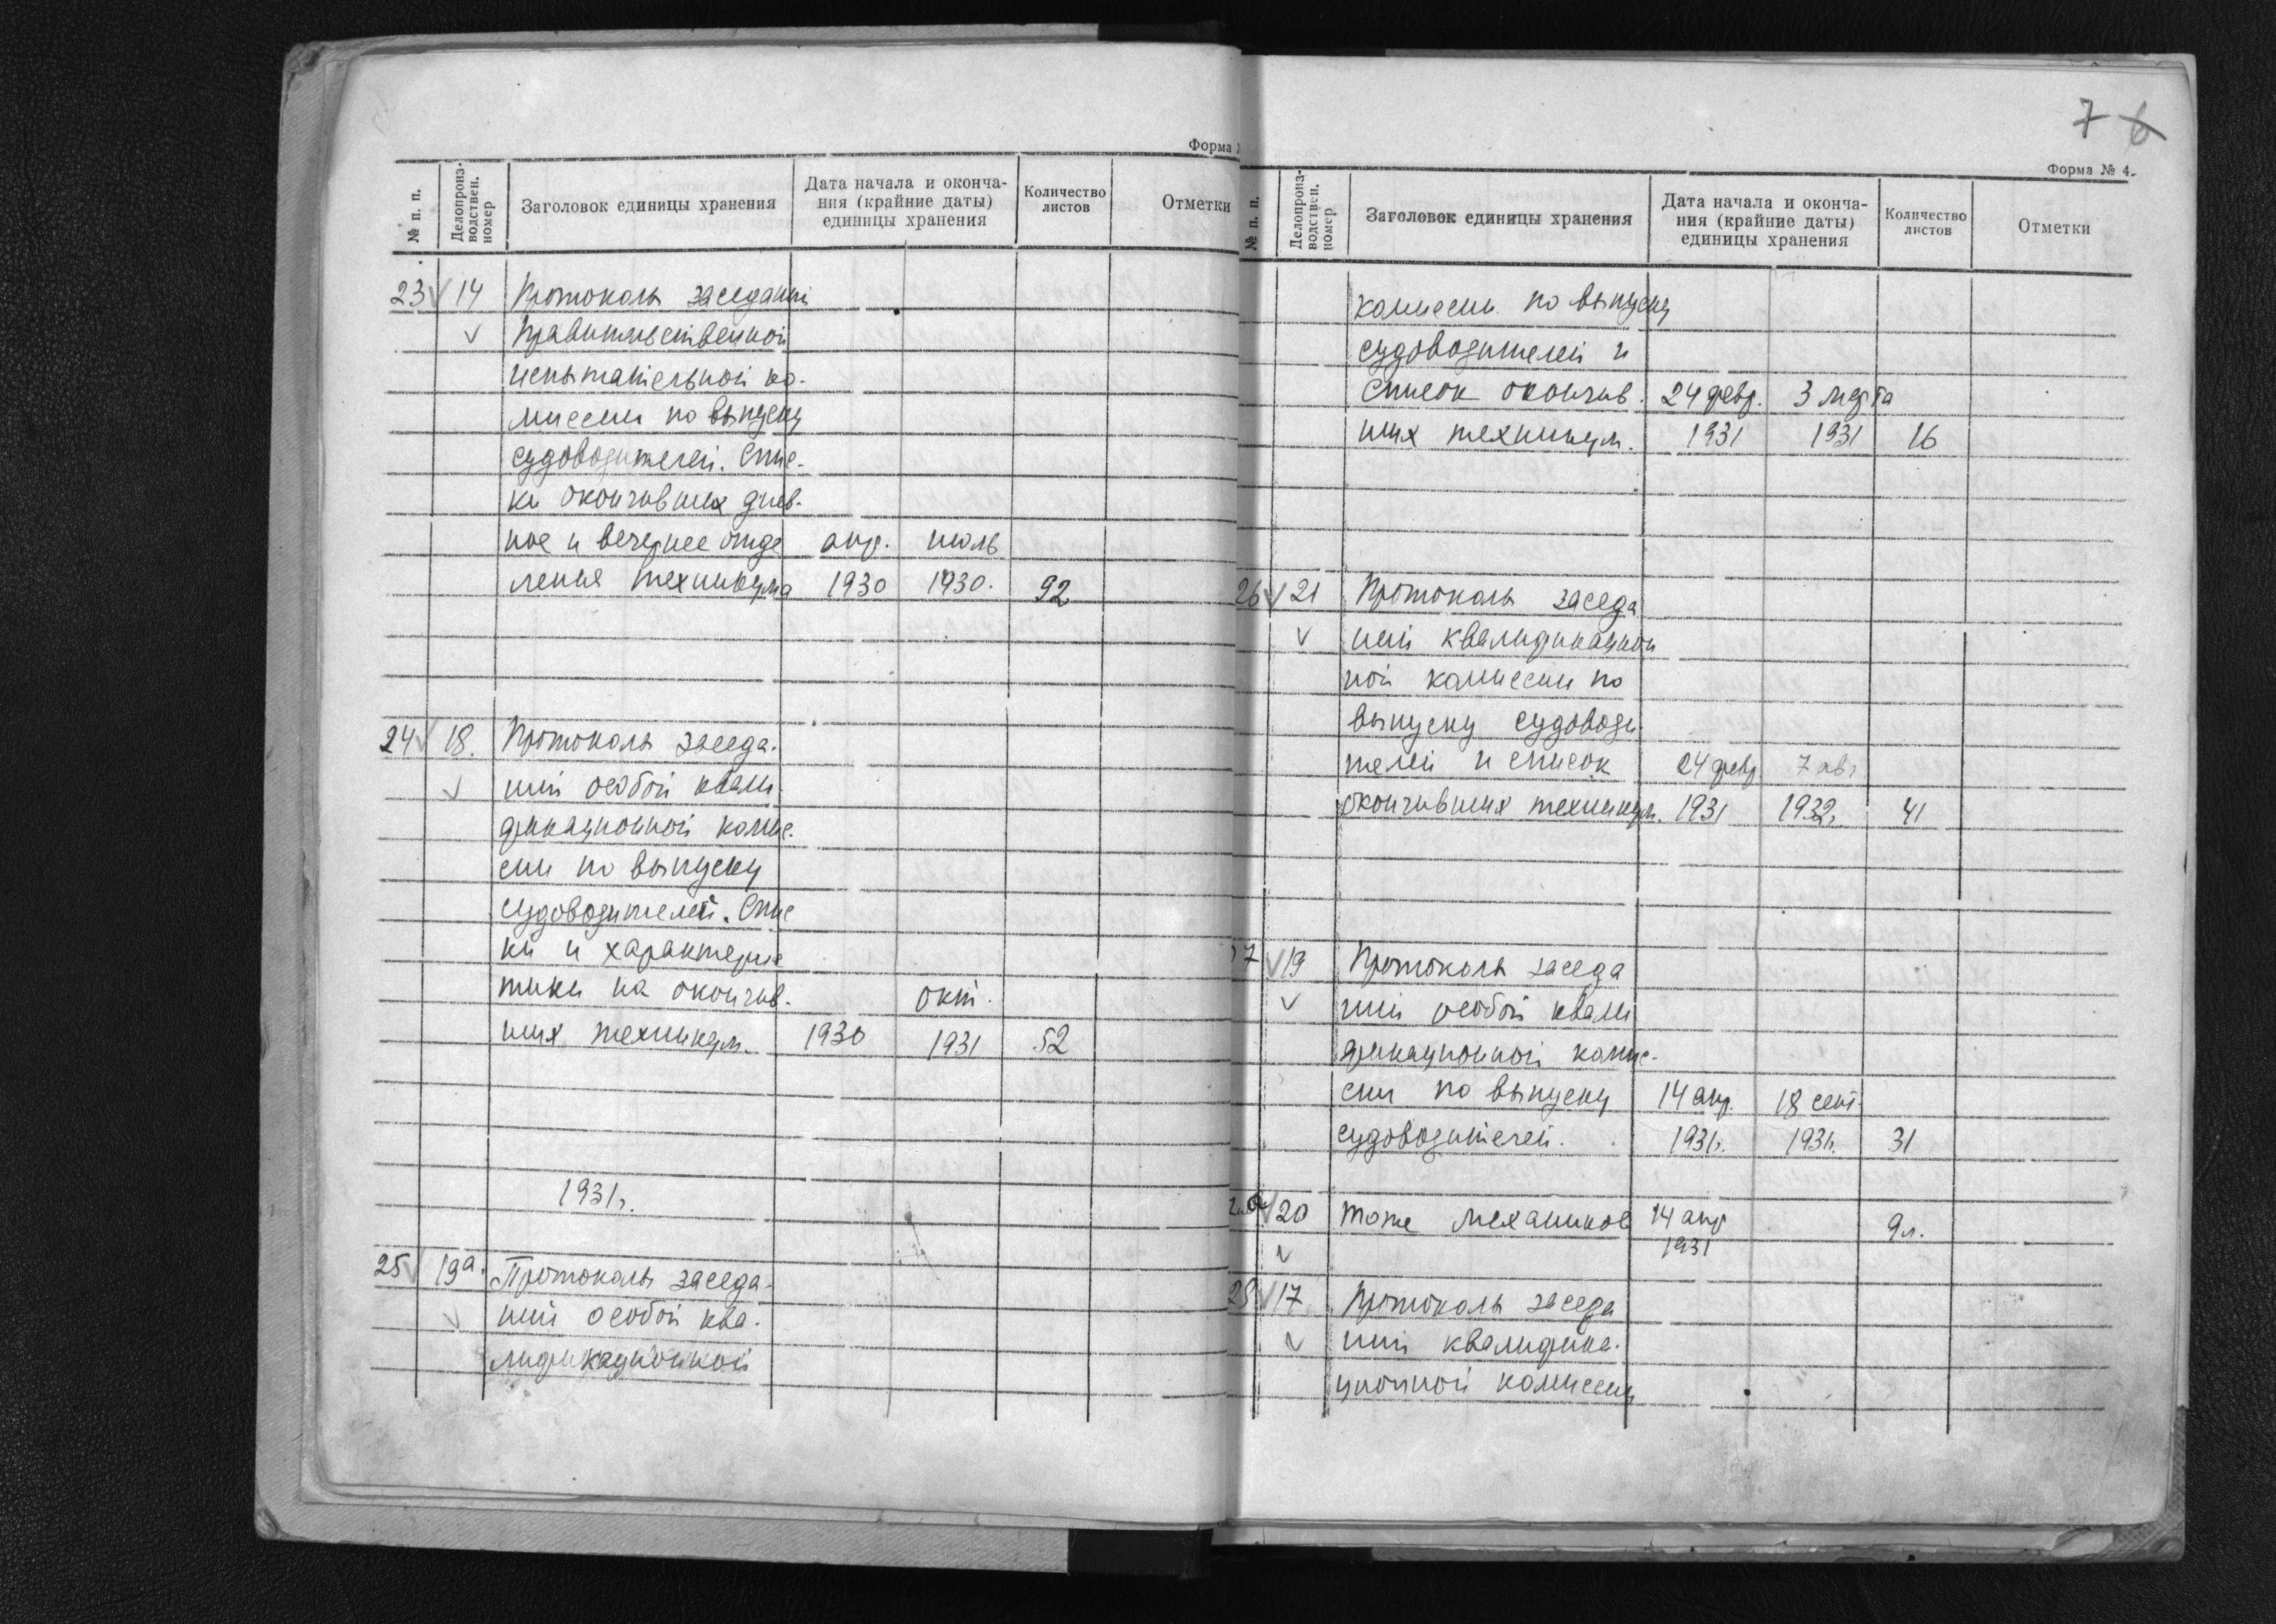 Форма
№ п. п.
Делопроиз-
водствен.
номер
Заголовок единицы хранения
Дата начала и оконча-
ния (крайние даты)
единицы хранения
Количество
листов
Отметки
23 14 Протоколы заседаний
Правительственной
испытательной ко-
миссии по выпуску
судоводителей. Спис-
ки окончивших днев-
ное и вечернее отде апр. июль
ления техникума 1930 1930. 92
24 18. Протоколы заседа-
ний особой квали-
фикационной комис-
сии по выпуску
судоводителей. Спис
ки и характерис
тики на окончив- окт.
ших техникум. 1930 1931 52
1931г.
25 19а. Протоколы заседа-
ний особой ква-
лификационной
7 6
Форма № 4.
№ п. п.
Делопроиз-
водствен.
номер
Заголовок единицы хранения
Дата начала и оконча-
ния (крайние даты)
единицы хранения
Количество
листов
Отметки
комиссии по выпуску
судоводителей и
список окончив- 24 февр. 3 марта
ших техникум. 1931 1931 16
26 21 Протоколы заседа
ний квалификацион
ной комиссии по
выпуску судоводи-
телей и список 24 февр. 7 авг
окончивших техникум. 1931 1932г. 41
7 19 Протоколы заседа
ний особой квали
фикационной комис-
сии по выпуску 14 апр. 18 сент.
судоводителей. 1931г. 1931г. 31
20 тоже механиков 14 апр 9л.
1931
17 Протоколы заседа
ний квалифика-
ционной комиссии